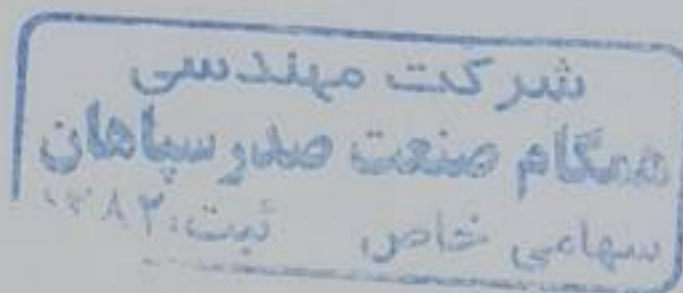 شرکت مهندسی
همگام صنعت صدر سپاهان
سهامی خاص ثبت: